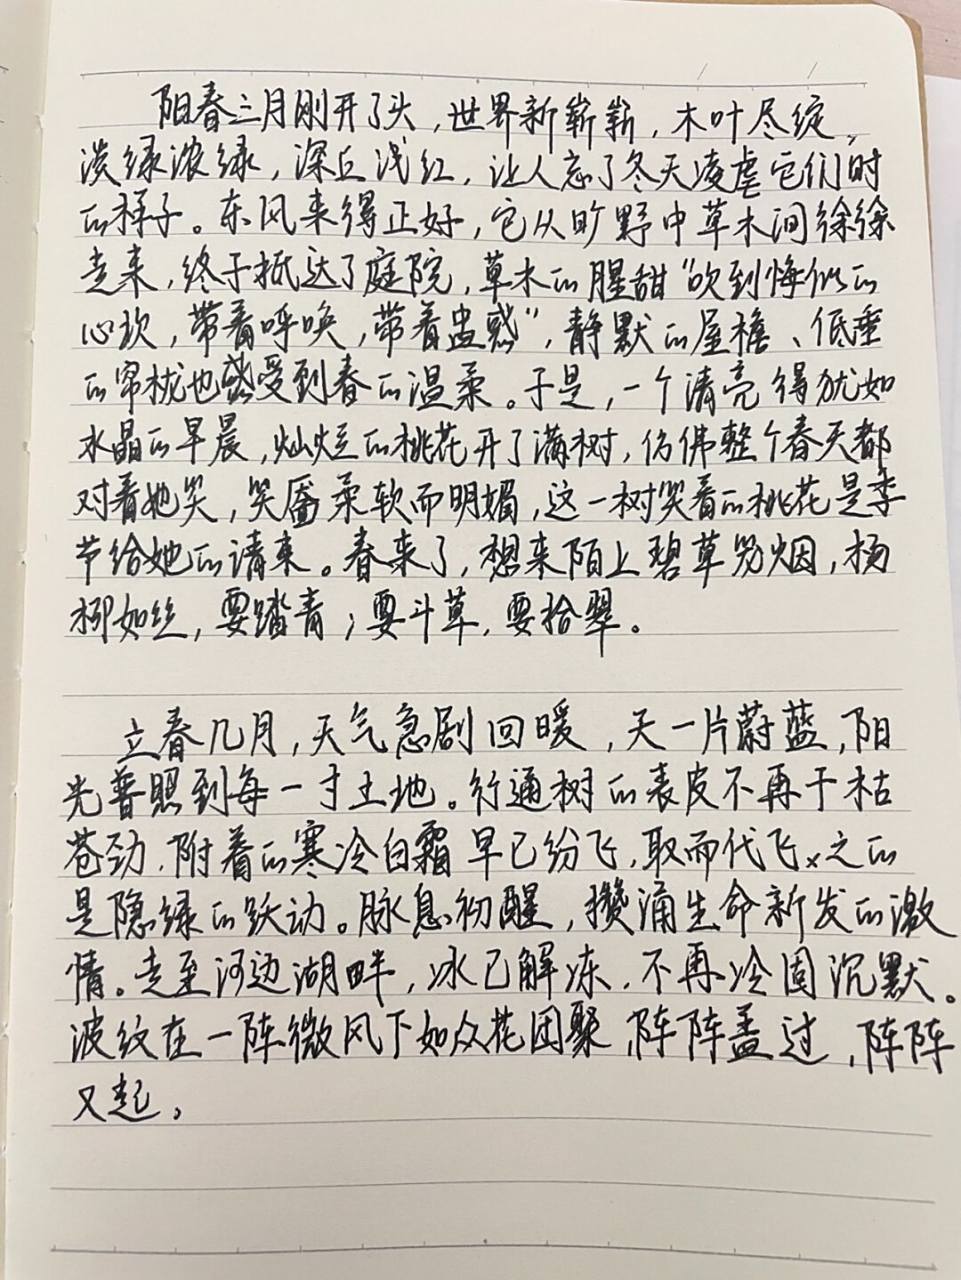 阳春三月刚开了头，世界新崭崭，木叶尽绽，
淡绿浓绿，深丘浅红，让人忘了冬天凌虐它们时
的样子。东风来得正好，它从旷野中草木间徐徐
走来，终于抵达了庭院，草木的腥甜“吹到悔似的
心坎，带着呼唤，带着蛊惑”，静默的屋檐、低垂
的帘栊也感受到春的温柔。于是，一个清亮得犹如
水晶的早晨，灿烂的桃花开了满树，仿佛整个春天都
对着她笑，笑靥柔软而明媚，这一树笑着的桃花是季
节给她的请柬。春来了，想来陌上碧草如烟，杨
柳如丝，要踏青；要斗草，要拾翠。
立春几月，天气急剧回暖，天一片蔚蓝，阳
光普照到每一寸土地。行通树的表皮不再干枯
苍劲，附着的寒冷白霜早已纷飞，取而代飞×之的
是隐绿的跃动。脉息初醒，攒涌生命新发的激
情。走至河边湖畔，冰已解冻，不再冷固沉默。
波纹在一阵微风下如众花团聚，阵阵盖过，阵阵
又起。